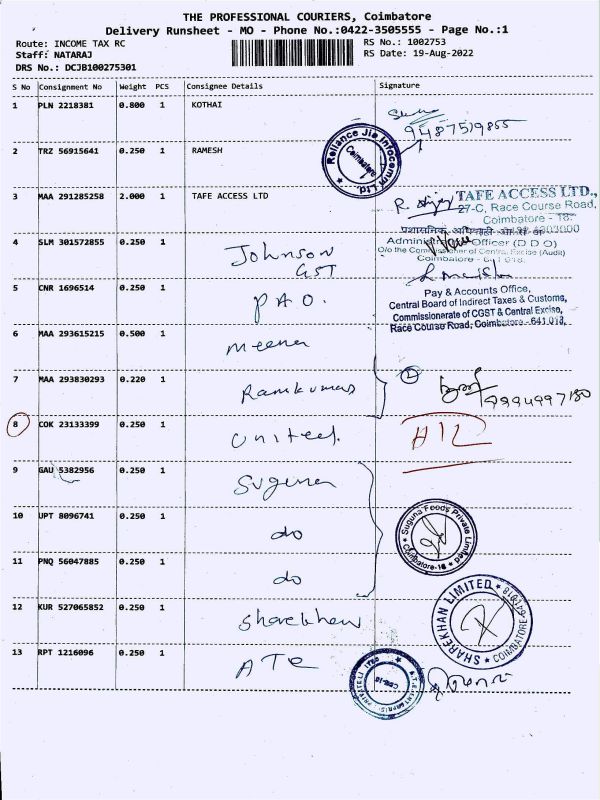 THE PROFESSIONAL COURIERS, Coimbatore
Delivery Runsheet - MO - Phone No.:0422-3505555 - Page No.:1
Route: INCOME TAX RC RS No.: 1002753
Staff: NATARAJ RS Date: 19-Aug-2022
DRS No.: DCJB100275301
S No Consignment No Weight PCS Consignee Details Signature
1 PLN 2218381 0.800 1 KOTHAI
9487519855
2 TRZ 56915641 0.250 1 RAMESH
Reliance Jio Infocomm Ltd.
Coimbatore
3 MAA 291285258 2.000 1 TAFE ACCESS LTD
TAFE ACCESS LTD.,
27-C, Race Course Road,
Coimbatore - 18.
4 SLM 301572855 0.250 1 Johnson
GST
Administrative Officer (D D O)
O/o the Commissioner of Central Excise (Audit)
Coimbatore - 641 018.
5 CNR 1696514 0.250 1 PAO.
Pay & Accounts Office,
Central Board of Indirect Taxes & Customs,
Commissionerate of CGST & Central Excise,
Race Course Road, Coimbatore - 641 018.
6 MAA 293615215 0.500 1 Meena
7 MAA 293830293 0.220 1 Ramkumar
2
9994997180
8 COK 23133399 0.250 1 United.
9 GAU 5382956 0.250 1 Suguna
10 UPT 8096741 0.250 1 do
Suguna Foods Private Limited
Coimbatore-18
11 PNQ 56047885 0.250 1 do
12 KUR 527065852 0.250 1 Sharekhan
SHAREKHAN LIMITED
COIMBATORE-641018
13 RPT 1216096 0.250 1 ATE